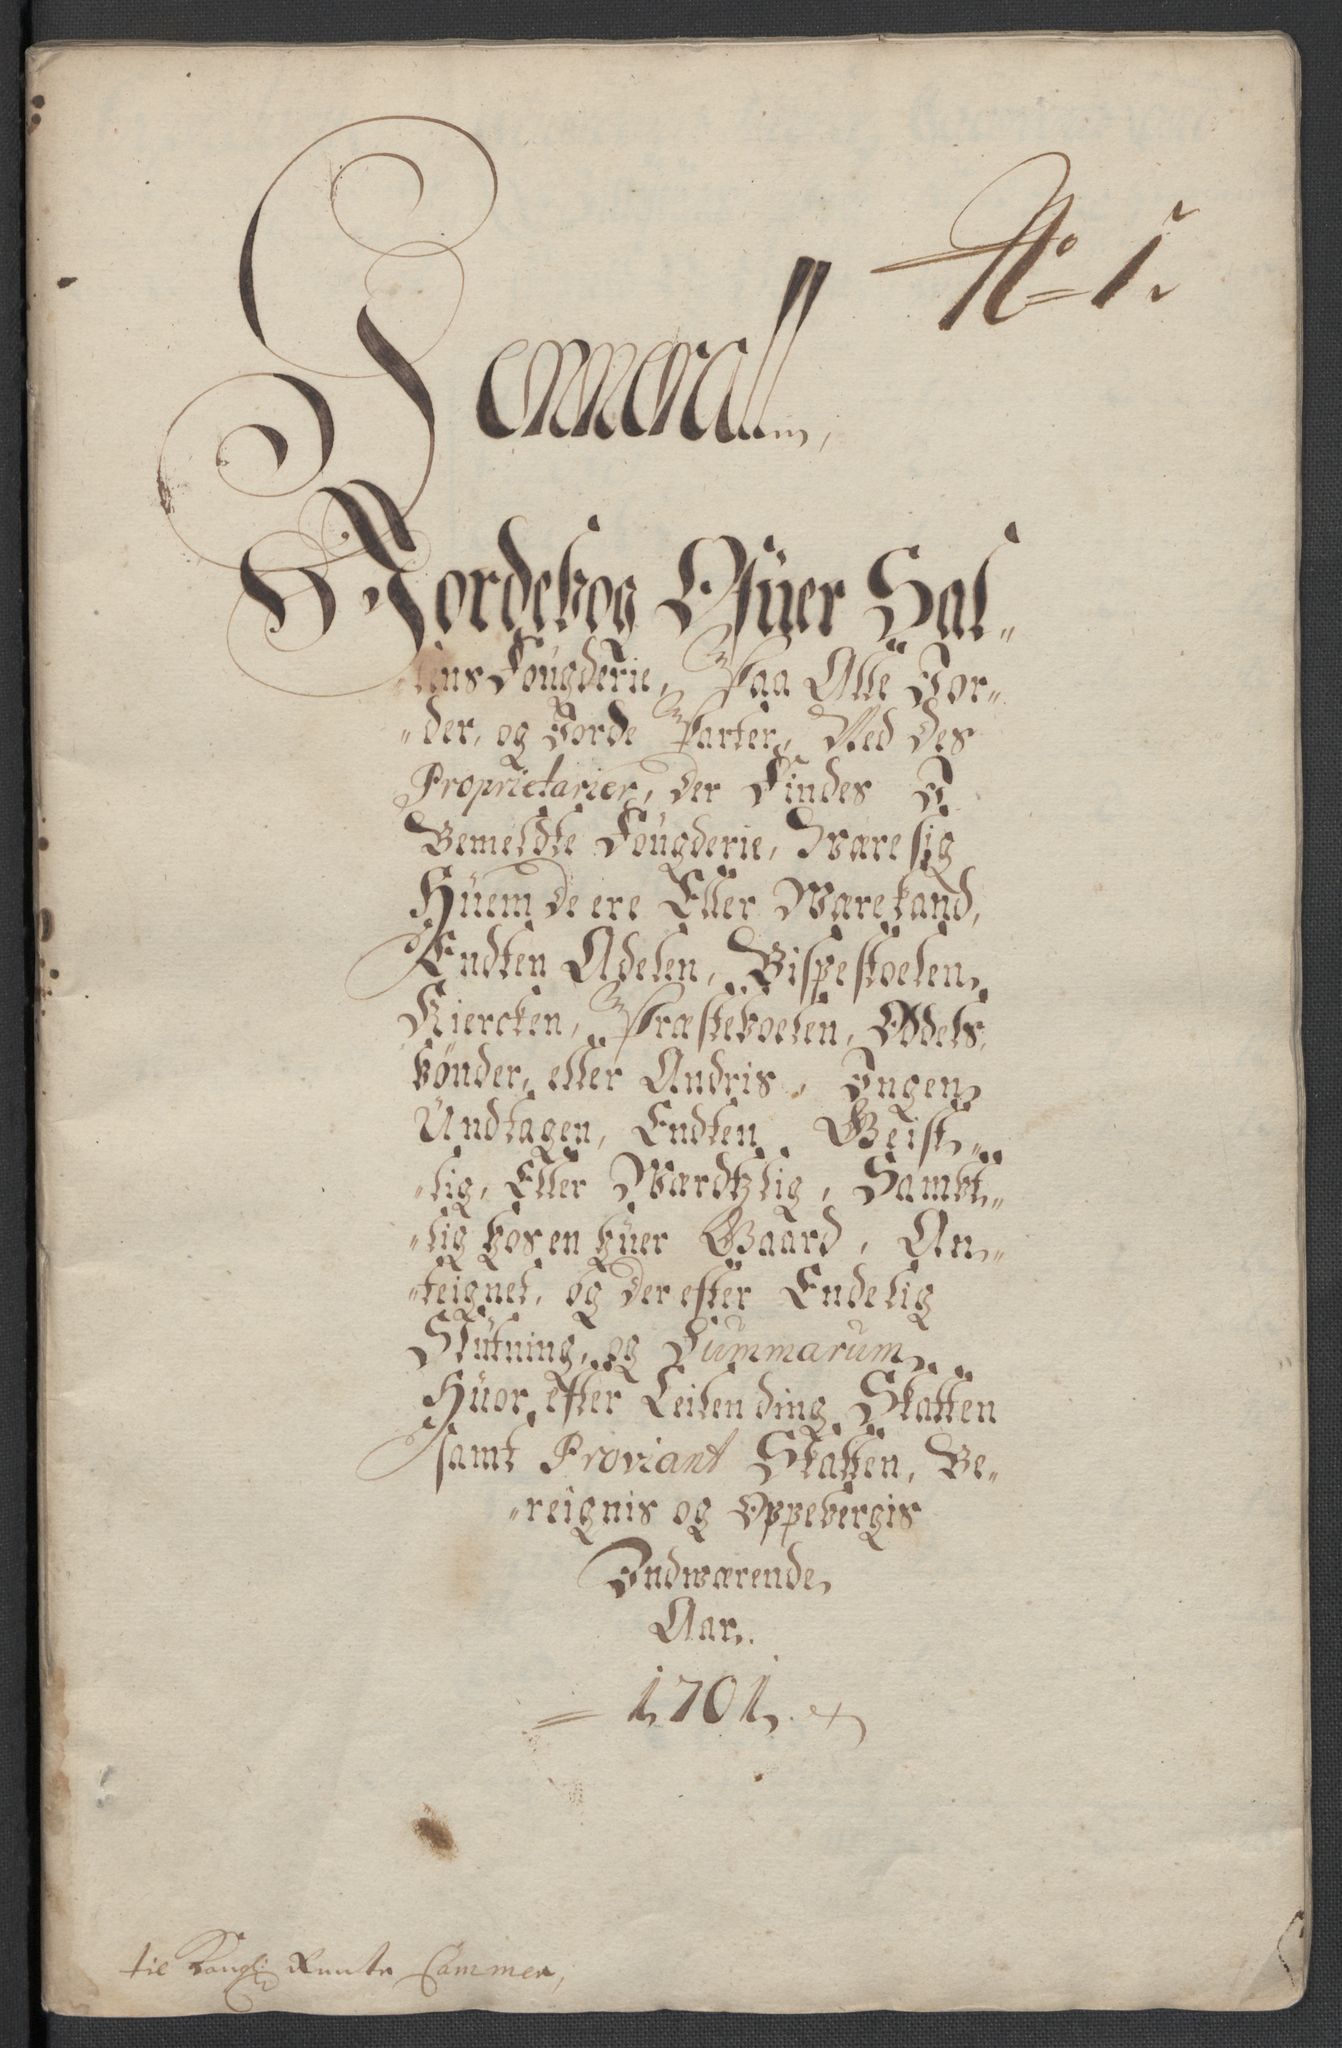 No 1.
Genneral
Jordebog Ofüer Sal„
„tens Fougderie, Paa Alle Jor„
„der, og Jorde Parter, Med des
Proprietarier, der Findes I
Bemeldte Fougderie, Være sig
Hüem de ere Eller Være kand,
Endten Adelen, Bispestoelen,
Kiercken, Præsteboelen, Oddels
bønder, eller Andris, Ingen
Undtagen, Endten Geist„
„lig, Eller Værdtzlig, Sambt„
„lig hos en hüer Gaard, An„
„teignet, og der efter Endelig
Slutning, og Summarum
Hüor efter Leilending Skatten
samt Proviant Skatten, Be„
„reignis og Oppebergis
Indwærende
Aar.
1701.
til Kongl: Rente Cammer,